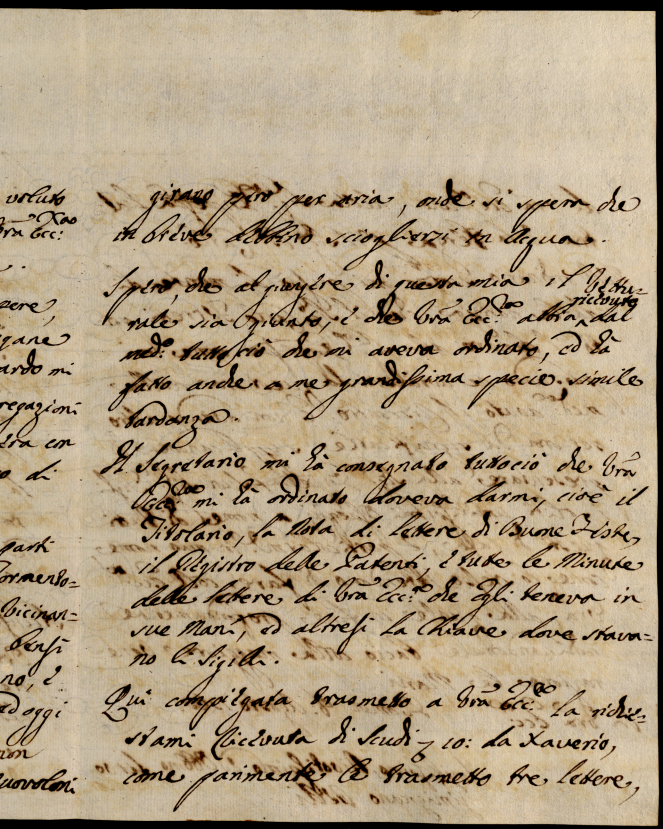 voluto
Vrã Ecc:
pere,
gane
ardo mi
regazioni
era con
o di
parti
Tormento=
Vicinan=
bensì
no, è
ed oggi
non
nuvoloni
girano però per aria, onde si spera che
in breve debbino sciogliersi in Acqua.
Spero, che al giugnere di questa mia il Vettu=
rale sia giunto, è che Vrã Ecc: abbia ricevuto dal
medº: tutto ciò che mi aveva ordinato, ed hà
fatto anche a me grandissima specie simile
tardanza.
Il Segretario mi hà consegnato tuttociò che Vrã
Ecc: mi hà ordinato doveva darmi, cioè il
Titolario, la Nota di lettere di Buone Feste,
il Registro delle Patenti, è tutte le Minute
delle lettere di Vrã Ecc: che Egli teneva in
sue Mani, ed altresì la Chiave dove stava=
no li Sigilli.
Qui compiegata trasmetto a Vrã Ecc: la richie=
stami Ricevuta di Scudi 10: da Xaverio,
come parimente le trasmetto tre lettere,